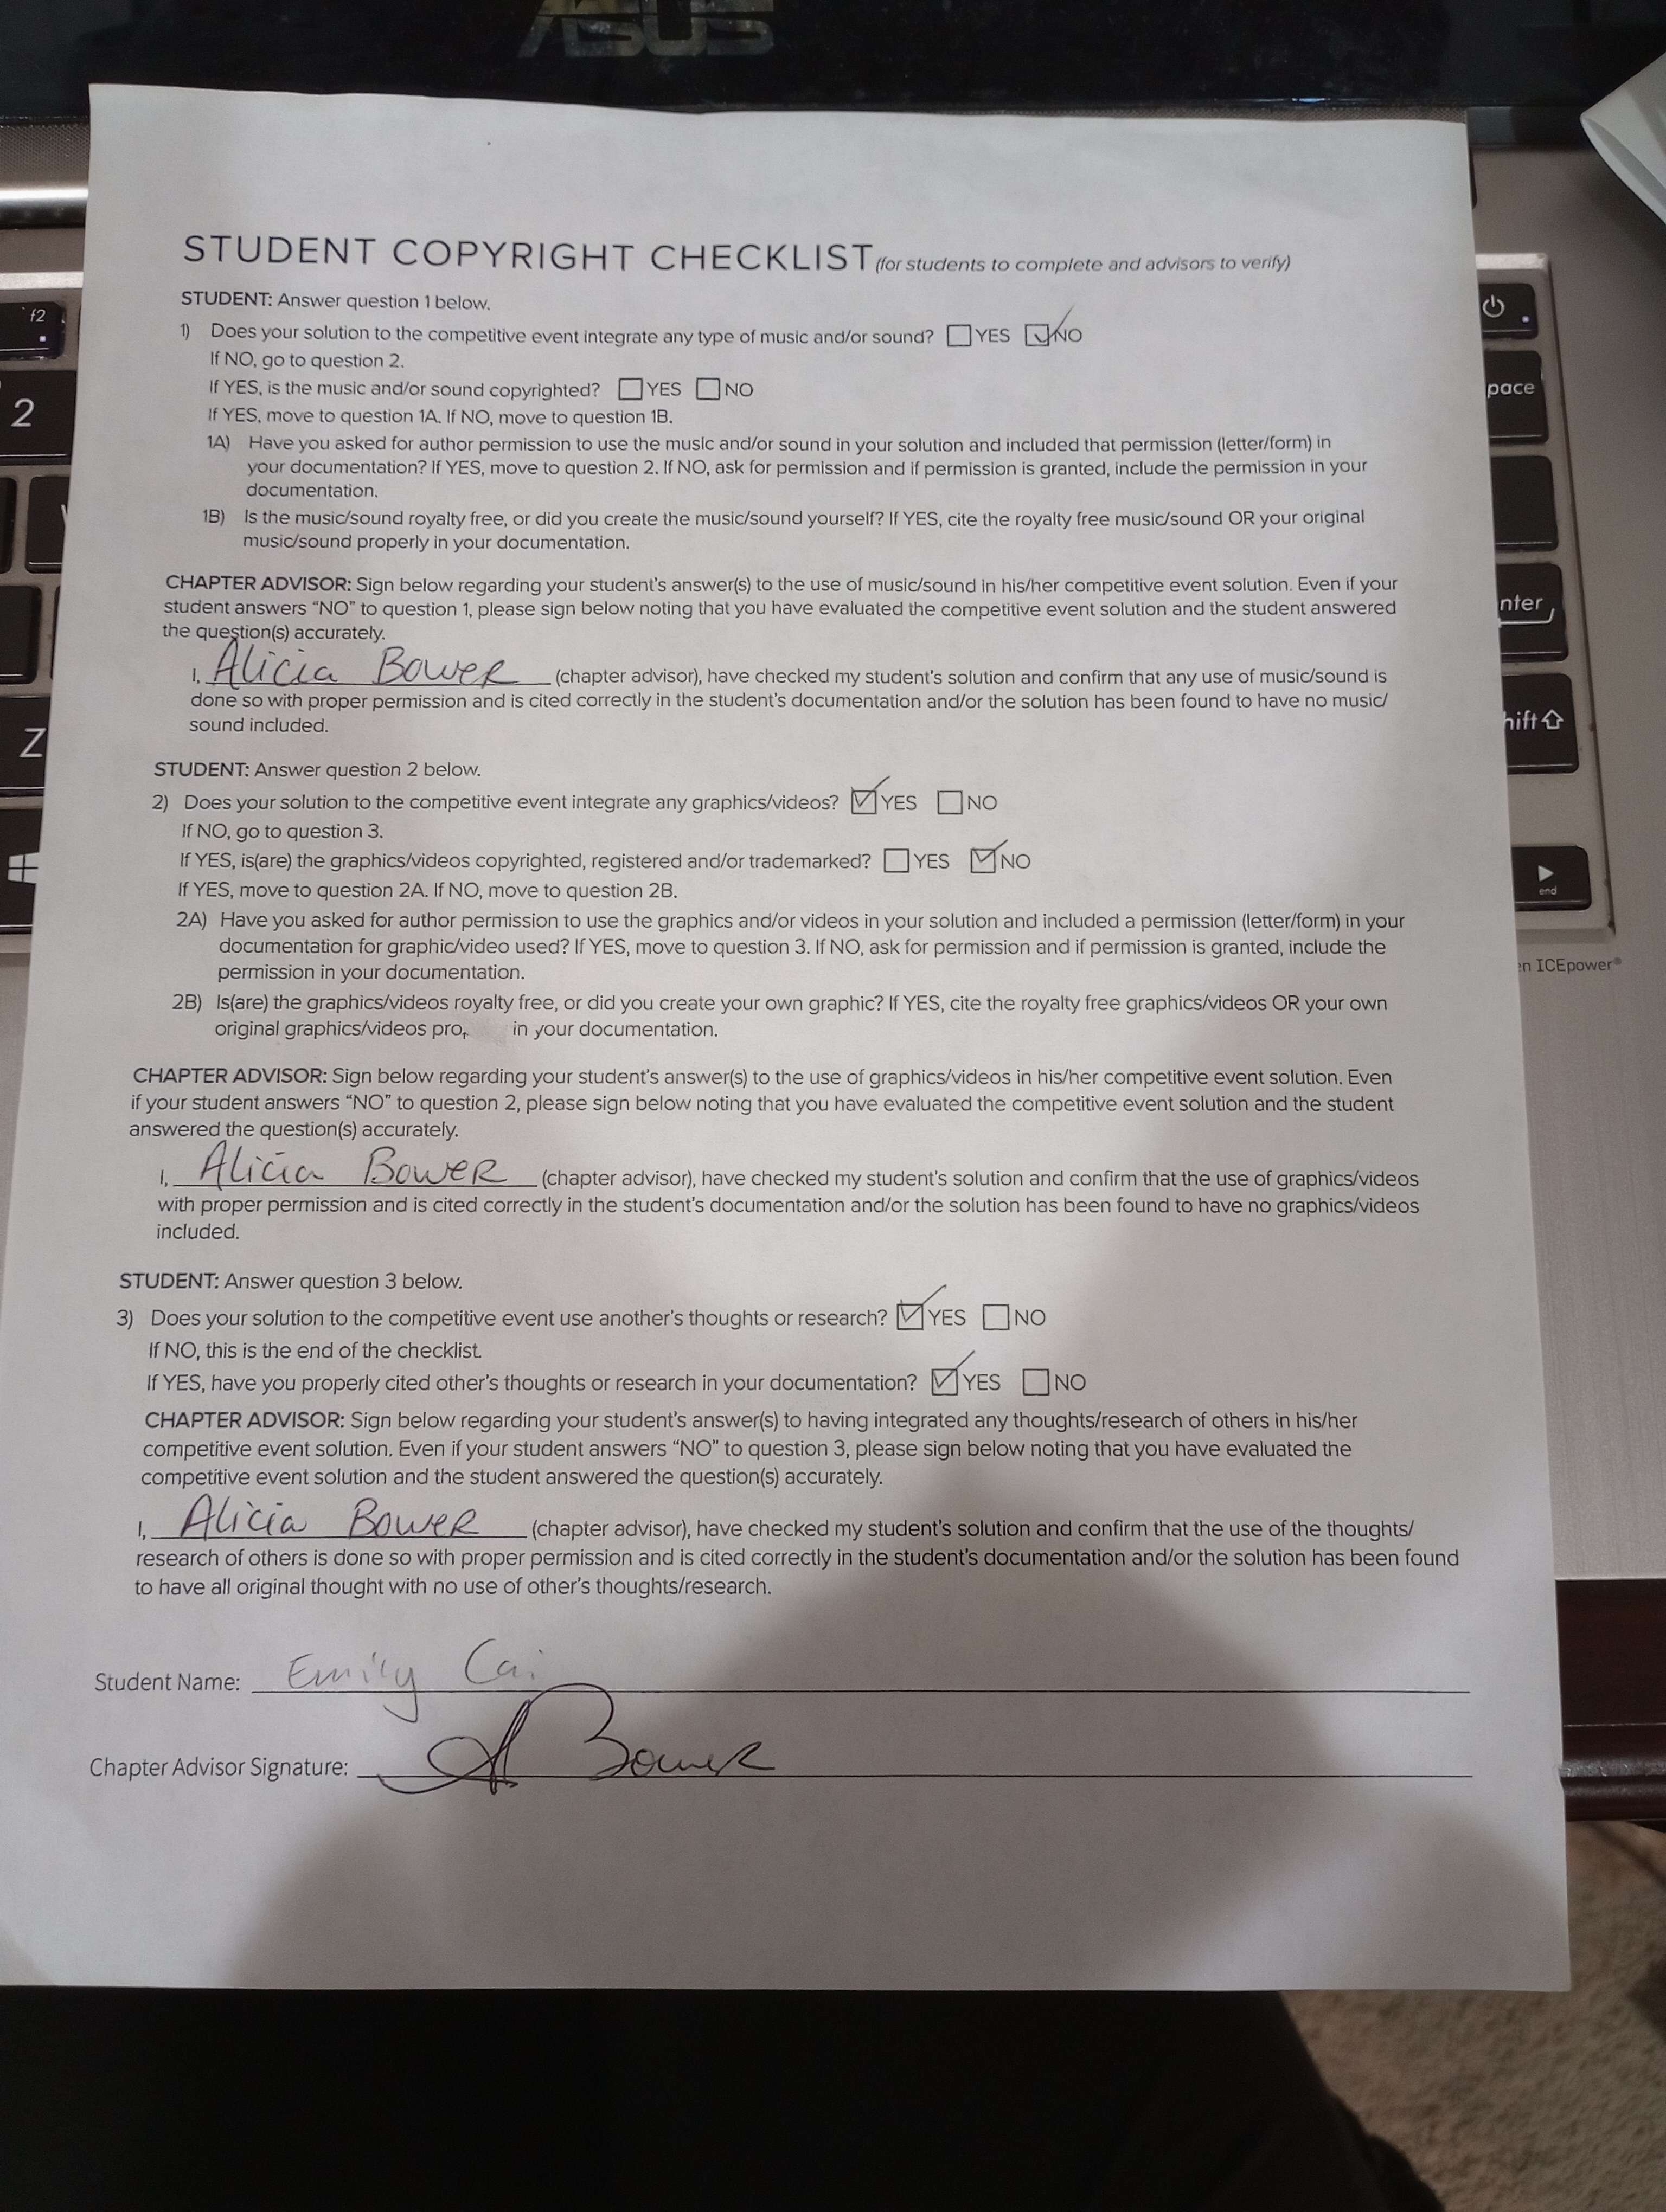 ASUS
STUDENT COPYRIGHT CHECKLIST (for students to complete and advisors to verify)
STUDENT: Answer question 1 below.
1) Does your solution to the competitive event integrate any type of music and/or sound? YES NO
If NO, go to question 2.
If YES, is the music and/or sound copyrighted? YES NO
If YES, move to question 1A. If NO, move to question 1B.
1A) Have you asked for author permission to use the music and/or sound in your solution and included that permission (letter/form) in
your documentation? If YES, move to question 2. If NO, ask for permission and if permission is granted, include the permission in your
documentation.
1B) Is the music/sound royalty free, or did you create the music/sound yourself? If YES, cite the royalty free music/sound OR your original
music/sound properly in your documentation.
CHAPTER ADVISOR: Sign below regarding your student's answer(s) to the use of music/sound in his/her competitive event solution. Even if your
student answers "NO" to question 1, please sign below noting that you have evaluated the competitive event solution and the student answered
the question(s) accurately.
I, Alicia Bower (chapter advisor), have checked my student's solution and confirm that any use of music/sound is
done so with proper permission and is cited correctly in the student's documentation and/or the solution has been found to have no music/
sound included.
STUDENT: Answer question 2 below.
2) Does your solution to the competitive event integrate any graphics/videos? YES NO
If NO, go to question 3.
If YES, is(are) the graphics/videos copyrighted, registered and/or trademarked? YES NO
If YES, move to question 2A. If NO, move to question 2B.
2A) Have you asked for author permission to use the graphics and/or videos in your solution and included a permission (letter/form) in your
documentation for graphic/video used? If YES, move to question 3. If NO, ask for permission and if permission is granted, include the
permission in your documentation.
2B) Is(are) the graphics/videos royalty free, or did you create your own graphic? If YES, cite the royalty free graphics/videos OR your own
original graphics/videos in your documentation.
CHAPTER ADVISOR: Sign below regarding your student's answer(s) to the use of graphics/videos in his/her competitive event solution. Even
if your student answers "NO" to question 2, please sign below noting that you have evaluated the competitive event solution and the student
answered the question(s) accurately.
I, Alicia Bower (chapter advisor), have checked my student's solution and confirm that the use of graphics/videos
with proper permission and is cited correctly in the student's documentation and/or the solution has been found to have no graphics/videos
included.
STUDENT: Answer question 3 below.
3) Does your solution to the competitive event use another's thoughts or research? YES NO
If NO, this is the end of the checklist.
If YES, have you properly cited other's thoughts or research in your documentation? YES NO
CHAPTER ADVISOR: Sign below regarding your student's answer(s) to having integrated any thoughts/research of others in his/her
competitive event solution. Even if your student answers "NO" to question 3, please sign below noting that you have evaluated the
competitive event solution and the student answered the question(s) accurately.
I, Alicia Bower (chapter advisor), have checked my student's solution and confirm that the use of the thoughts/
research of others is done so with proper permission and is cited correctly in the student's documentation and/or the solution has been found
to have all original thought with no use of other's thoughts/research.
Student Name: Emily Cai
Chapter Advisor Signature: A Bower
f2
2
Z
pace
nter
hift
end
en ICEpower®